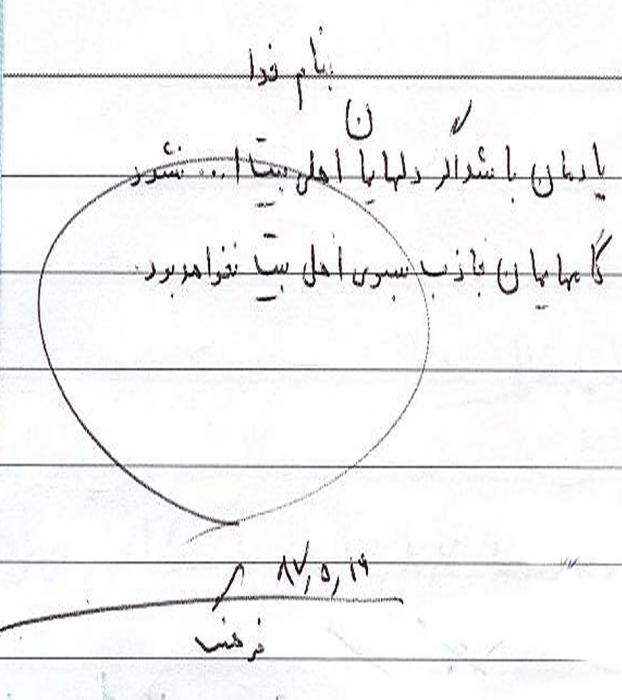 بنام خدا
یادمان باشد اگر دلهایمان اهلی بیت ا... نشود
گامهایمان جاذب بسوی اهل بیت نخواهد بود.
۸۷,۵,۱۶